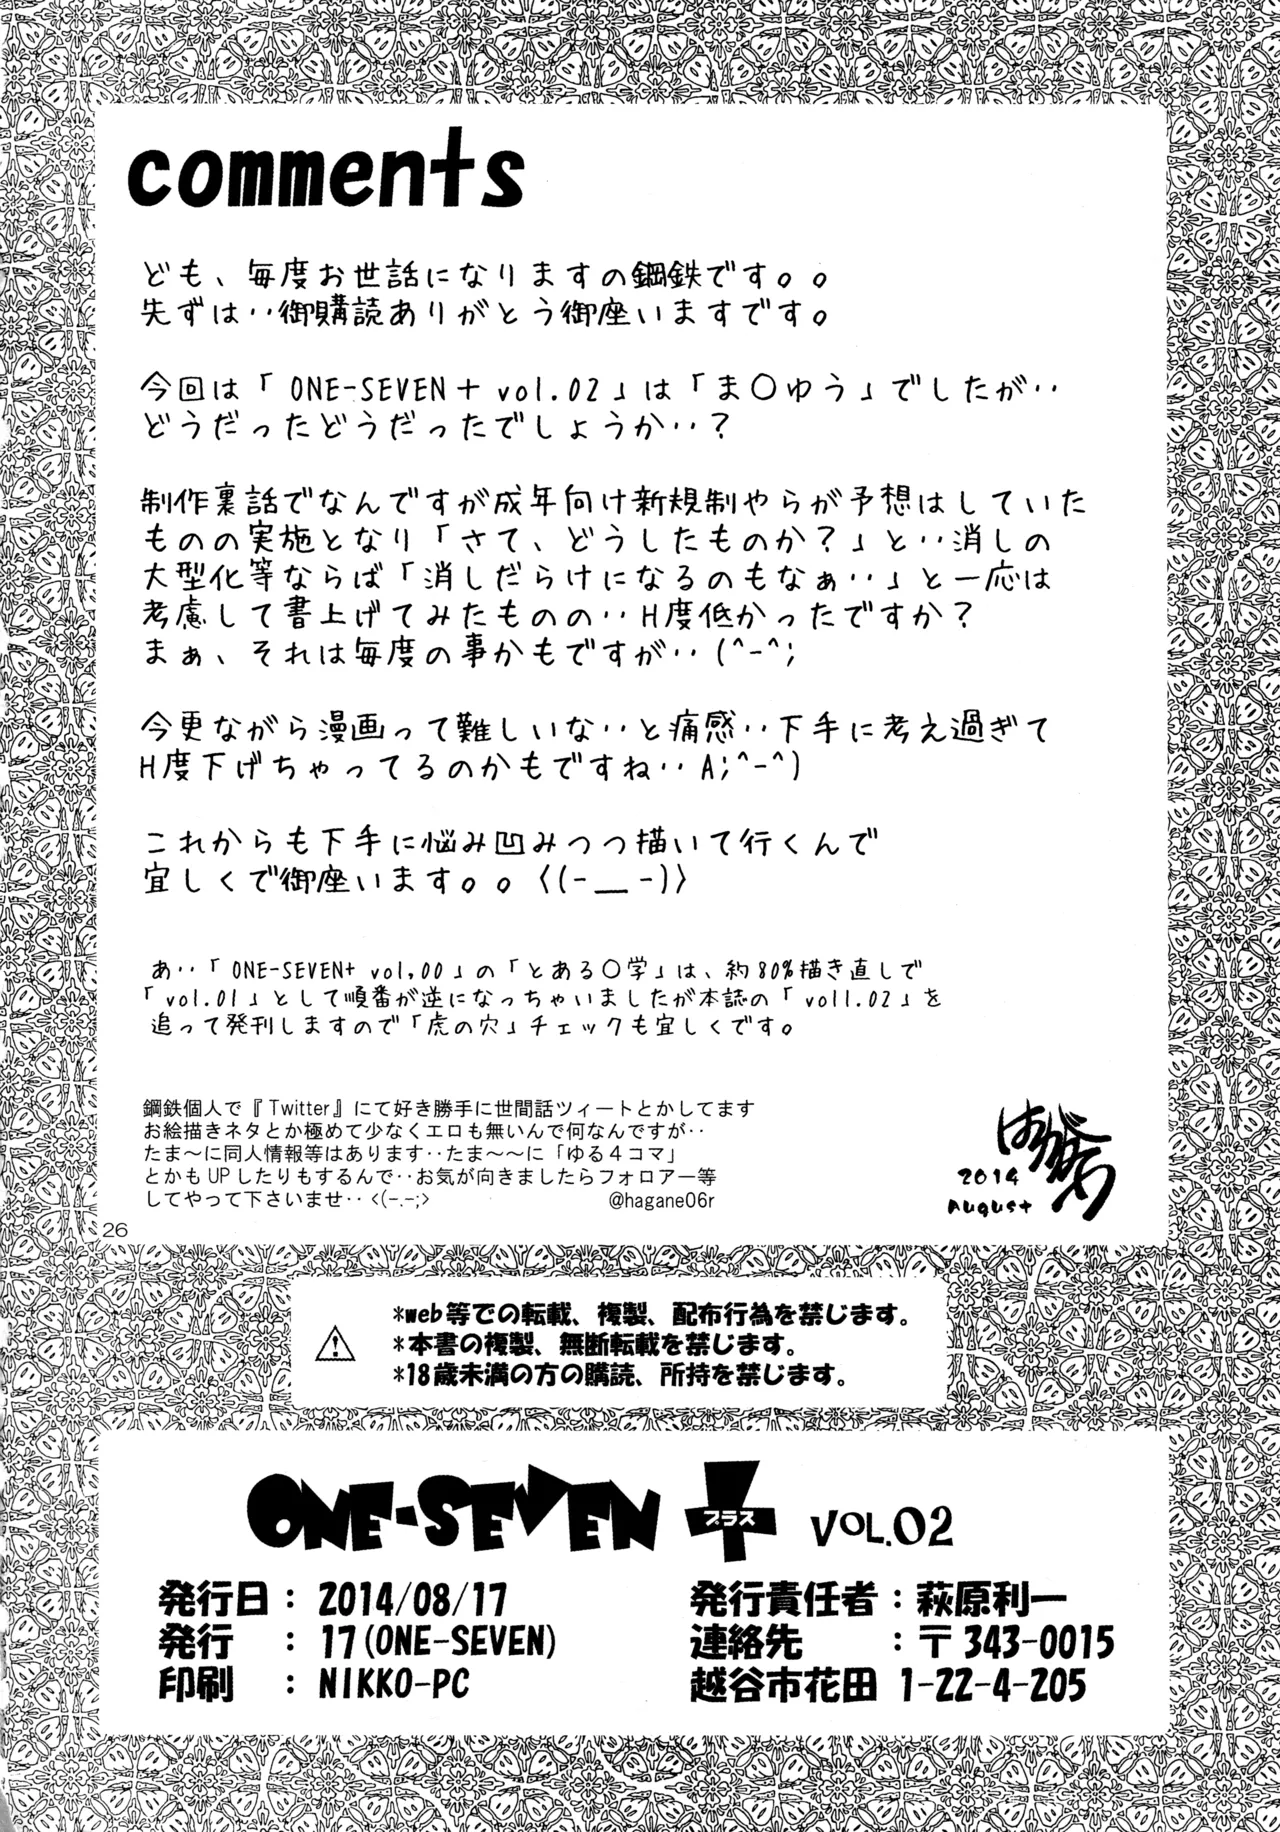 comments
ども、毎度お世話になりますの鋼鉄です。。
先ずは‥御購読ありがとう御座いますです。
今回は「ONE-SEVEN+ vol.02」は「ま〇ゆう」でしたが‥
どうだったどうだったでしょうか‥?
制作裏話でなんですが成年向け新規制やらが予想はしていた
ものの実施となり「さて、どうしたものか?」と‥消しの
大型化等ならば「消しだらけになるのもなぁ‥」と一応は
考慮して書上げてみたものの‥H度低かったですか?
まぁ、それは毎度の事かもですが‥(^-^;
今更ながら漫画って難しいな‥と痛感‥下手に考え過ぎて
H度下げちゃってるのかもですね‥A;^-^)
これからも下手に悩み凹みつつ描いて行くんで
宜しくで御座います。。〈(-__-)〉
あ‥「ONE-SEVEN+ vol,00」の「とある〇学」は、約80%描き直しで
「vol.01」として順番が逆になっちゃいましたが本誌の「voll.02」を
追って発刊しますので「虎の穴」チェックも宜しくです。
鋼鉄個人で『Twitter』にて好き勝手に世間話ツィートとかしてます
お絵描きネタとか極めて少なくエロも無いんで何なんですが‥
たま～に同人情報等はあります‥たま～～に「ゆる4コマ」
とかもUPしたりもするんで‥お気が向きましたらフォロアー等
してやって下さいませ‥<(-.-;> @hagane06r
2014
August
26
*web等での転載、複製、配布行為を禁じます。
*本書の複製、無断転載を禁じます。
*18歳未満の方の購読、所持を禁じます。
ONE-SEVEN + プラス VOL.02
発行日： 2014/08/17
発行 ： 17(ONE-SEVEN)
印刷 ： NIKKO-PC
発行責任者：萩原利一
連絡先 ：〒343-0015
越谷市花田 1-22-4-205